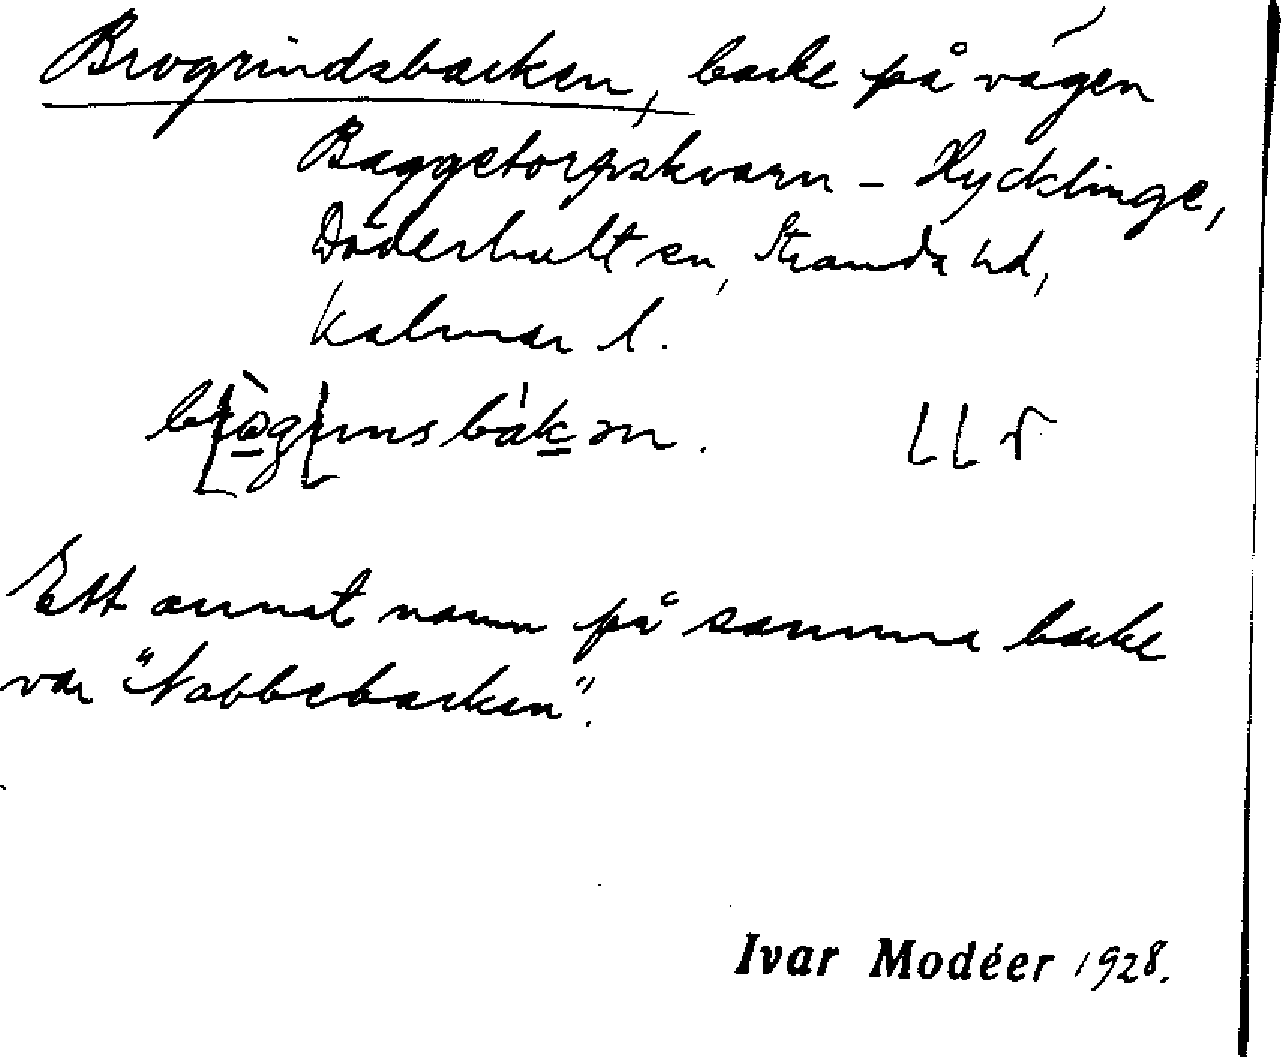 Brogrindsbacken, backe på vägen
Baggetorpskvarn – Hycklinge,
Döderhult sn, Stranda hd,
Kalmar l.
Ett annat namn på samma backe
var "Nabbebacken".
Ivar Modéer 1928.